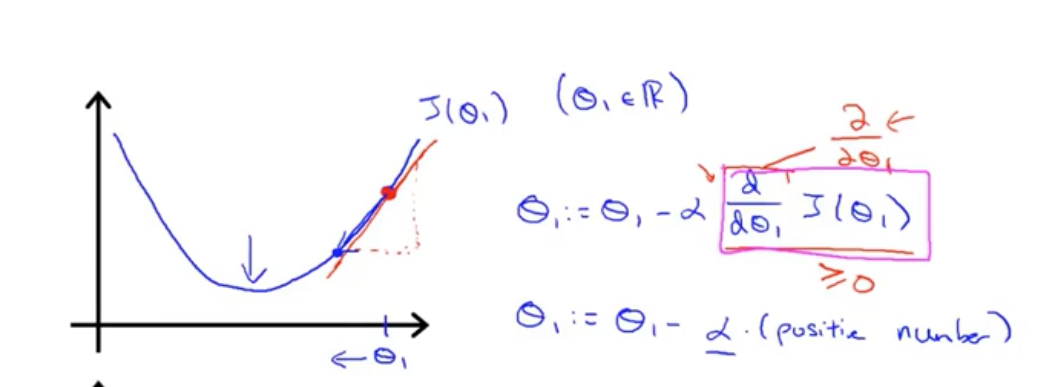 J(θ₁) (θ₁ ∈ ℝ)
∂/∂θ₁ ←
θ₁ := θ₁ - α d/dθ₁ J(θ₁)
≥ 0
θ₁ := θ₁ - α · (positive number)
← θ₁